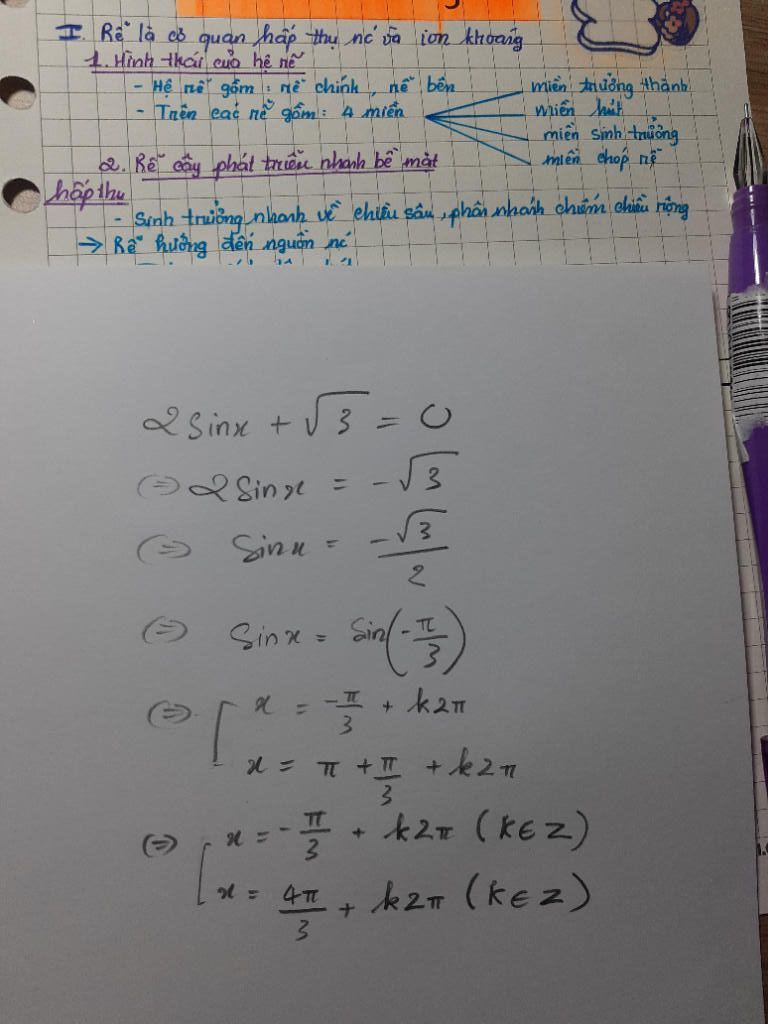 I. Rễ là cơ quan hấp thụ nc và ion khoáng
1. Hình thái của hệ rễ
- Hệ rễ gồm: rễ chính, rễ bên
- Trên các rễ gồm: 4 miền
miền trưởng thành
miền hút
miền sinh trưởng
miền chóp rễ
2. Rễ cây phát triển nhanh bề mặt
hấp thụ
- Sinh trưởng nhanh về chiều sâu, phân nhánh chiếm chiều rộng
→ Rễ hướng đến nguồn nc
2sinx + √3 = 0
⇔ 2sinx = -√3
⇔ Sinx = -√3/2
⇔ Sinx = Sin(-π/3)
⇔ [ x = -π/3 + k2π
x = π + π/3 + k2π
⇔ [ x = -π/3 + k2π (k∈Z)
x = 4π/3 + k2π (k∈Z)